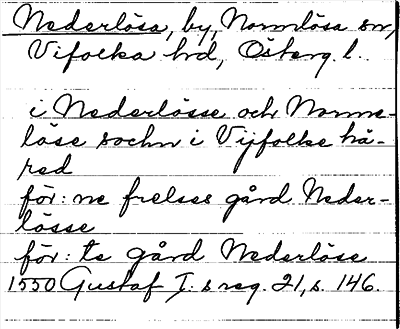 Nederlösa, by, Normlösa sn,
Vifolka hd, Österg. l.
i Nederlösse och Norme-
löse sochn i Vijfolke hä-
red
för:ne frelses gård Neder-
lösse
för:te gård Nederlöse
1550 Gustaf I:s reg. 21, s. 146.